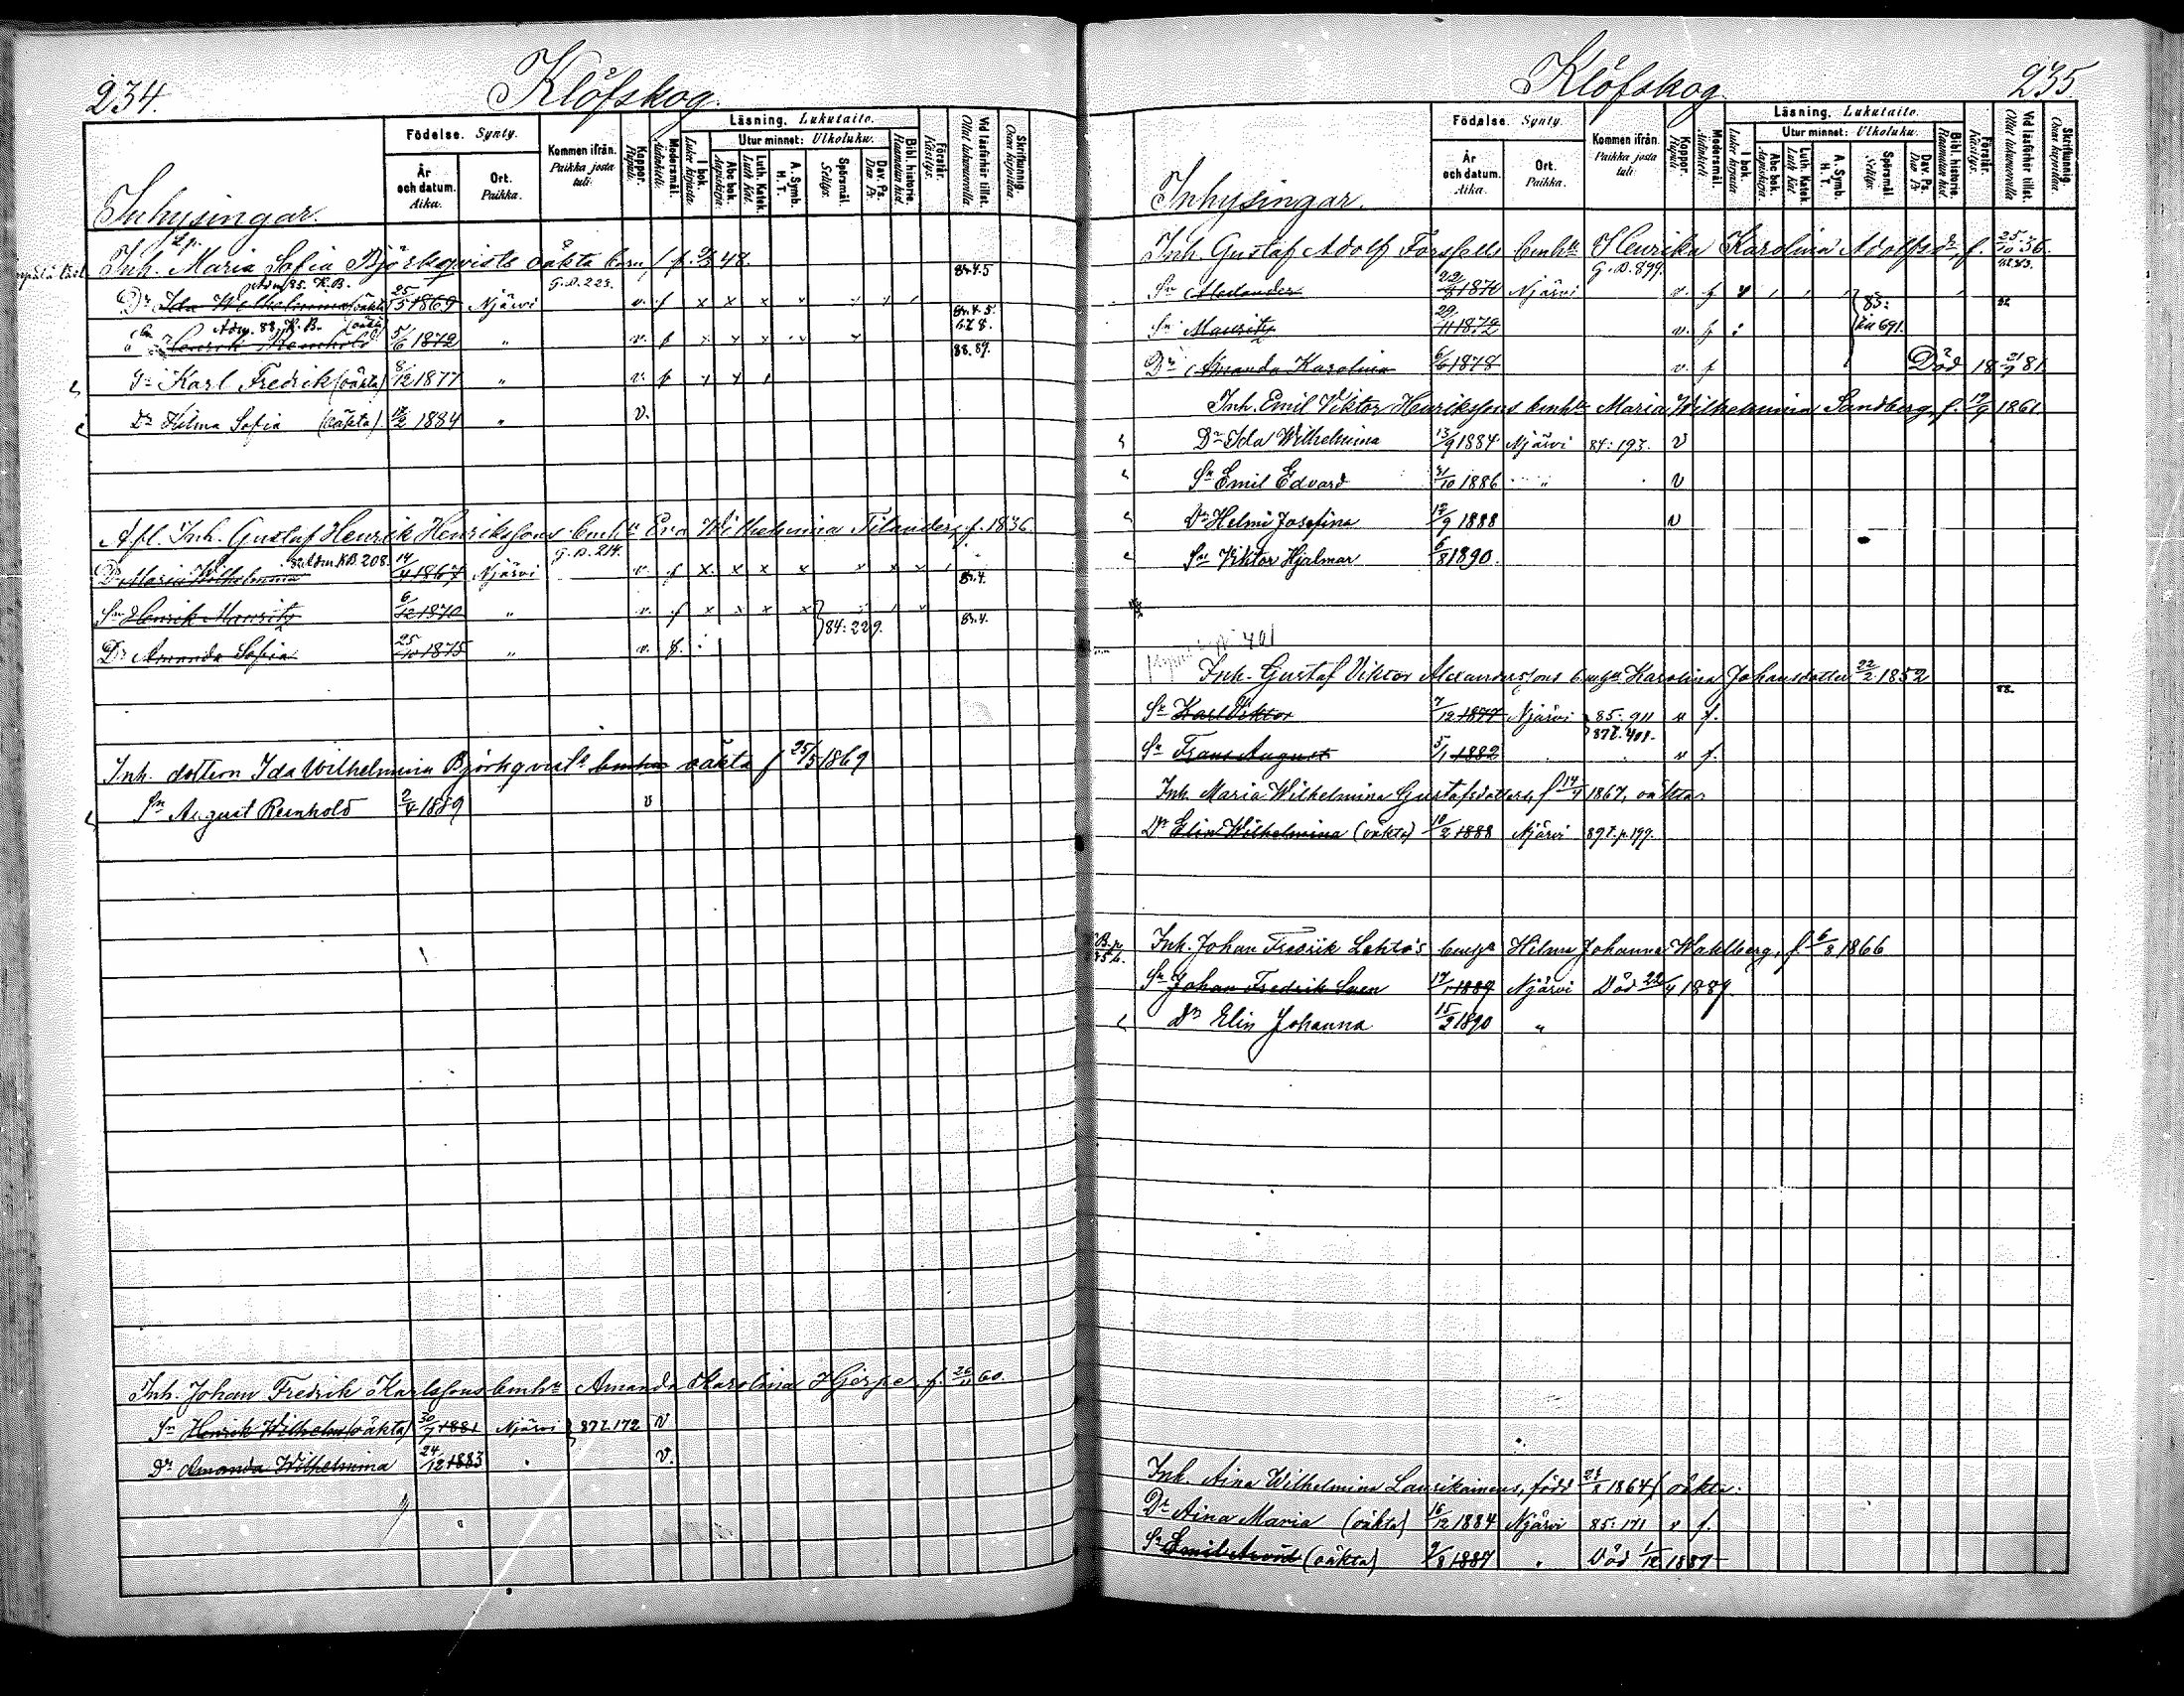 234.
Klöfskog.
Födelse. Synty.
Kommen ifrån. Paikka josta tuli.
Koppor. Rupuli.
Modersmål. Äidinkieli.
Läsning. Lukutaito.
I bok. Lukee kirjasta.
Utur minnet: Ulkoluku.
Abc bok. Aapiskirja.
Luth. Katek. Luth. Kat.
A. Symb. H. T.
Spörsmål. Selitys.
Dav. Ps. Dav. Ps.
Bibl. historie. Raamatun hist.
Förstår. Käsitys.
Vid läsförhör tillst. Ollut lukuvuorolla
Skriftkunnig. Osaa kirjoittaa.
År och datum. Aika.
Ort. Paikka.
Inhysingar.
Inh. Maria Sofia Björkqvists oäkta barn, f. 48.
Adm. 85. K.B. G.D. 223. 84.5
Dr Ida Wilhelmina (oäkta) 25/5 1869 Njärvi v. f x x x
Adm. 88. K.B. (oäkta)
Sn Henrik Reinhold 5/6 1872 " v. f
88.89.
Sn Karl Fredrik (oäkta) 8/12 1877 " v. f
Dr Hilma Sofia (oäkta) 1884 " v.
Afl. Inh. Gustaf Henrik Henrikssons bmhu Eva Wilhelmina Tilanders, f. 1836
Adm KB 208. G.D. 214.
Dr Maria Wilhelmina 14/4 1867 Njärvi v. f x x x x
Sn Henrik Mauritz 6/12 1870 " v. f x x x x 84: 229.
Dr Amanda Sofia 25/10 1875 " v. f.
Inh. dottern Ida Wilhelmina Björkqvists oäkta f 25/5 1869
Sn August Reinhold 2/4 1889 v
Inh. Johan Fredrik Karlssons bmhu Amanda Karolina Hjerpe, f. 26/11 60.
Sn Henrik Wilhelm (oäkta) 30/7 1881 Njärvi 87 t. 172 v
Dr Amanda Wilhelmina 24/12 1883 " v.
Klöfskog.
235.
Födelse. Synty.
Kommen ifrån. Paikka josta tuli.
Koppor. Rupuli.
Modersmål. Äidinkieli.
Läsning. Lukutaito.
I bok. Lukee kirjasta.
Utur minnet: Ulkoluku.
Abc bok. Aapiskirja.
Luth. Katek. Luth. Kat.
A. Symb. H. T.
Spörsmål. Selitys.
Dav. Ps. Dav. Ps.
Bibl. historie. Raamatun hist.
Förstår. Käsitys.
Vid läsförhör tillst. Ollut lukuvuorolla
Skriftkunnig. Osaa kirjoittaa.
År och datum. Aika.
Ort. Paikka.
Inhysingar.
Inh. Gustaf Adolf Forssells bmhu Henrika Karolina Adolfsdr, f. 25/10 36.
G.D. 899.
Sn Alexander 22/8 1870 Njärvi v. f
Sn Mauritz 29/11 1872 v. f 85: 691.
Dr Amanda Karolina 6/6 1878 v. f Död 18 21/7 81
Inh. Emil Viktor Henrikssons bmhu Maria Wilhelmina Sandberg, f. 19/9 1861
Dr Ida Wilhelmina 13/9 1884 Njärvi 84: 193. v
Sn Emil Edvard 31/10 1886 " v
Dr Helmi Josefina 12/9 1888 v
Sn Viktor Hjalmar 6/8 1890.
401
Inh. Gustaf Viktor Alexanderssons Karolina Johansdotter 22/2 1852
88.
Sn Karl Viktor 7/12 1877 Njärvi 85: 911 v f.
87 t. 401.
Sn Frans August 5/1 1882 v f.
Inh. Maria Wilhelmina Gustafsdotters, f 14/4 1867, oäkta
Dr Elin Wilhelmina (oäkta) 10/2 1888 Njärvi 89 t. p. 199.
Inh. Johan Fredrik Lehto's Hilma Johanna Wahlberg, f. 6/8 1866
Sn Johan Fredrik 1889 Njärvi Död 22/4 1889.
Dr Elin Johanna 15/2 1890 "
Inh. Aina Wilhelmina Laurikainens, född 1864, oäkta:
Dr Aina Maria (oäkta) 16/12 1884 Njärvi 85: 171 v f.
Sn Emil Arvid (oäkta) 9/8 1887 " Död 1/12 1887